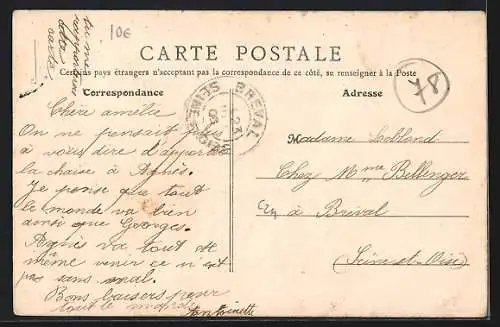 tu me
rapporteras
cette
carte
10€
CARTE POSTALE
Certains pays étrangers n'acceptant pas la correspondance de ce côté, se renseigner à la Poste
78
Correspondance
Adresse
BREVAL
SEINE-ET-OISE
23
Chère amélie
On ne pensait plus
à vous dire d'apporter
la chaise à Agnès.
Je pense que tout
le monde va bien
ainsi que Georges.
Agnès va tout de
même venir ce n'est
pas sans mal.
Bons baisers pour
tout le monde
Antoinette
Madame Leblond
Chez Mme Bellenger
à Bréval
(Seine-et-Oise)